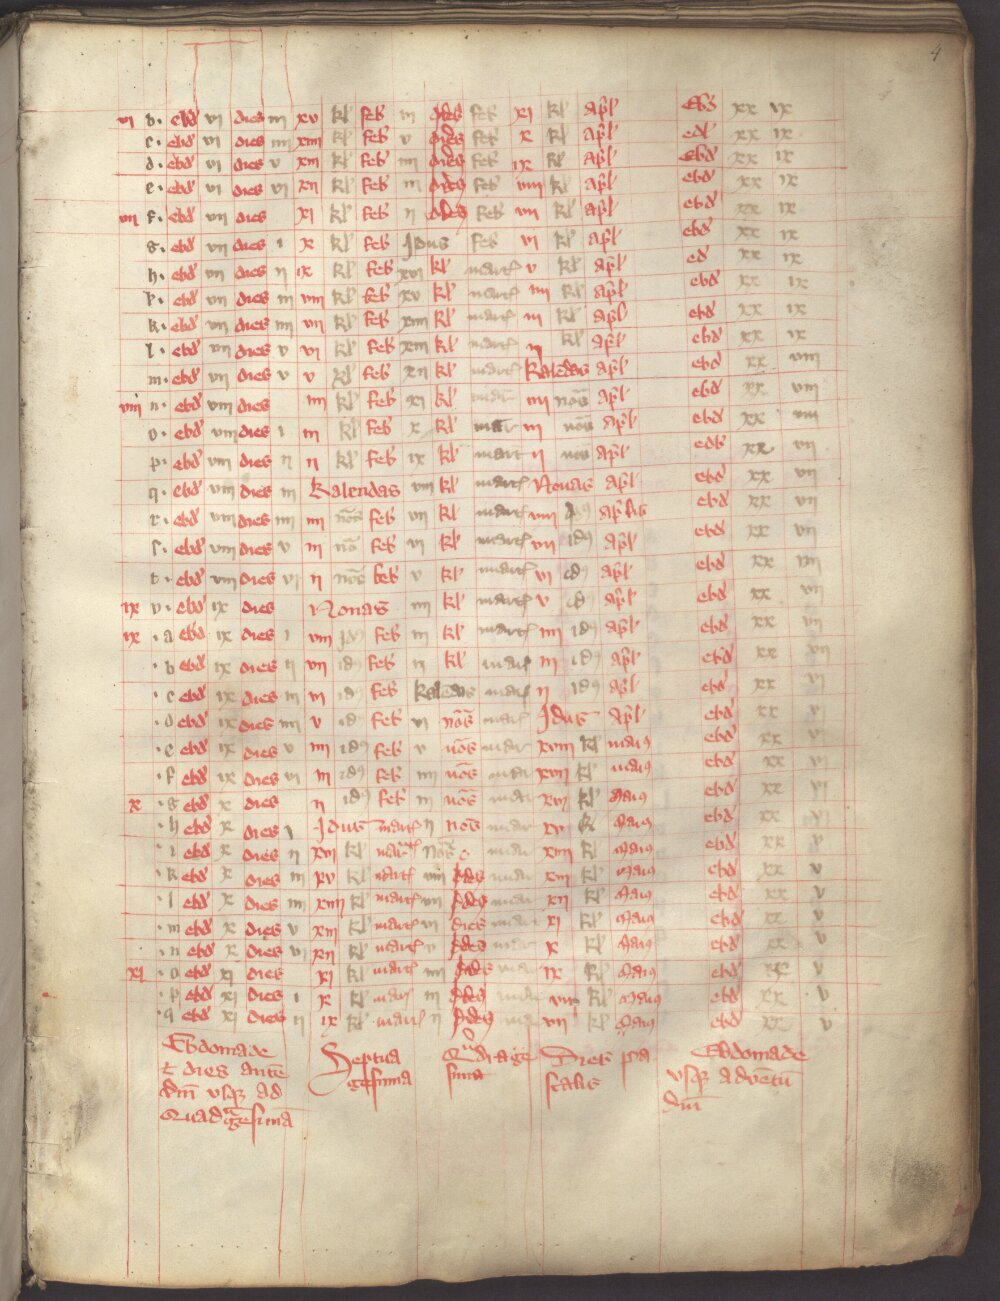 4
vi b· ebd vi dies iii xv kl feb vi ides feb xi kl apl ebd xx ix
c· ebd vi dies iiii xiiii kl feb v ides feb x kl apl ebd xx ix
d· ebd vi dies v xiii kl feb iiii ides feb ix kl apl ebd xx ix
e· ebd vi dies vi xii kl feb iii ides feb viii kl apl ebd xx ix
vii f· ebd vii dies xi kl feb ii ides feb vii kl apl ebd xx ix
g· ebd vii dies i x kl feb Idus feb vi kl apl ebd xx ix
h· ebd vii dies ii ix kl feb xvi kl marcs v kl apl ed xx ix
ebd vii dies iii viii kl feb xv kl marcs iiii kl apl ebd xx ix
k· ebd vii dies iiii vii kl feb xiiii kl marcs iii kl apl ebd xx ix
l· ebd vii dies v vi kl feb xiii kl marcs ii kl apl ebd xx ix
m· ebd vii dies v v kl feb xii kl marcs Kalēdas apl ebd xx viii
viii n· ebd viii dies iiii kl feb xi kl mar iiii nōs apl ebd xx viii
o· ebd viii dies i iii kl feb x kl mar iii nōs apl ebd xx viii
p· ebd viii dies ii ii kl feb ix kl marc ii nōs apl edb xx vii
q· ebd viii dies iii Kalendas viii kl marcs Nonas apl ebd xx vii
r· ebd viii dies iiii iiii nōs feb vii kl marcs viii aplis ebd xx vii
s· ebd viii dies v iii nōs feb vi kl marcs vii id9 apl ebd xx vii
t· ebd viii dies vi ii nōs feb v kl marcs vi id9 apl ebd xx
ix v· ebd ix dies Nonas iiii kl marcs v id9 apl ebd xx vii
ix ·a ebd ix dies i viii id9 feb iii kl marcs iiii id9 apl ebd xx vii
·b ebd ix dies ii vii id9 feb ii kl marcs iii id9 apl ebd xx vii
·c ebd ix dies iii vi id9 feb Kalēdas marcs ii id9 apl ebd xx vi
·d ebd ix dies iiii v id9 feb vi nōs marcs Idus apl ebd xx v
·e ebd ix dies v iiii id9 feb v nōs mar xviii kl mai9 ebd xx vi
·f ebd ix dies vi iii id9 feb iiii nōs mar xvii kl mai9 ebd xx vi
x ·g ebd x dies ii id9 feb iii nōs mar xvi kl mai9 ebd xx vi
·h ebd x dies i Idus marcs ii nōs mar xv kl mai9 ebd xx vi
·i ebd x dies ii xvi kl marcs Nōas mar xiiii kl mai9 ebd xx v
·k ebd x dies iii xv kl marcs viii ides mar xiii kl mai9 ebd xx v
·l ebd x dies iiii xiiii kl marcs vii ides mar xii kl mai9 ebd xx v
·m ebd x dies v xiii kl marcs vi dies mar xi kl mai9 ebd xx v
·n ebd x dies vi xii kl marcs v ides mar x kl mai9 ebd xx v
xi ·o ebd xi dies xi kl marcs iiii ides mar ix kl mai9 ebd xx v
·p ebd xi dies i x kl marcs iii ides mar viii kl mai9 ebd xx v
·q ebd xi dies ii ix kl marcs ii ides mar vii kl mai9 ebd xx v
Ebdomade
t dies ante
dm̄ vsqꝫ ad
Quadragesima
Septua
gesima
Quadrage
sima
Dies pa
scalis
Ebdomade
vsqꝫ advētū
dm̄